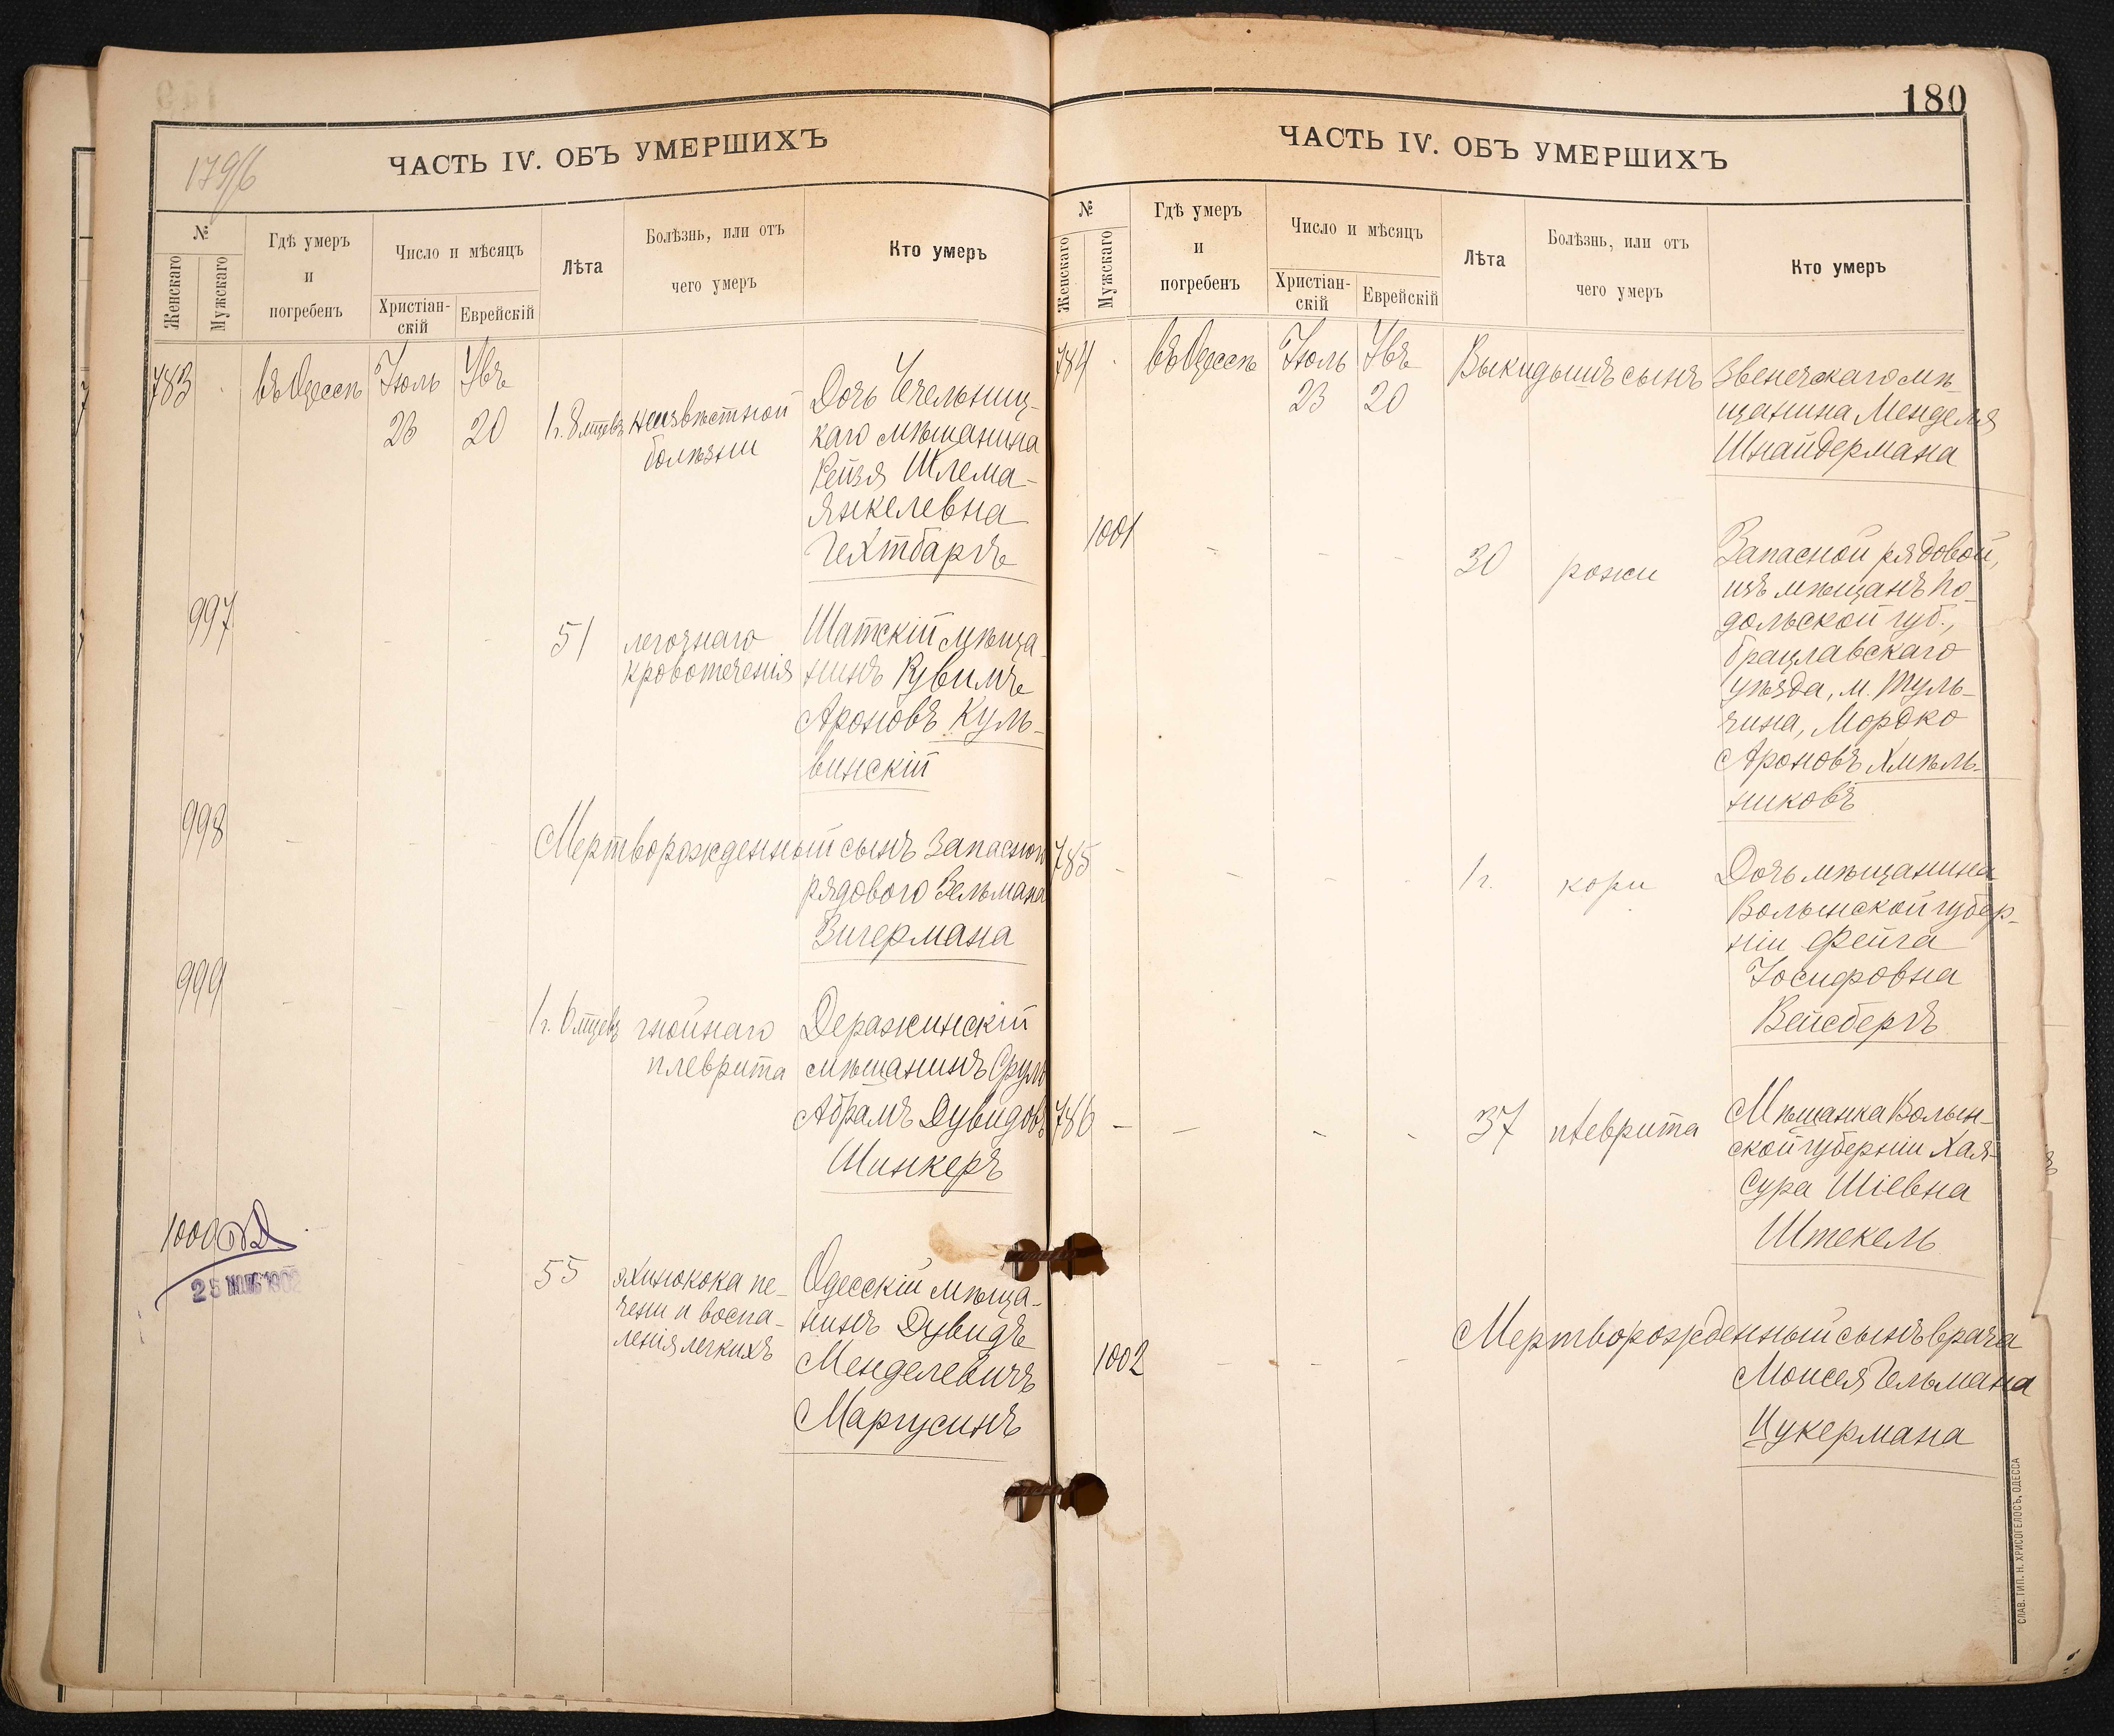 179/б
ЧАСТЬ IV. ОБЪ УМЕРШИХЪ
№
Женскаго
Мужскаго
Гдѣ умеръ
и
погребенъ
Число и мѣсяцъ
Христіан-
скій
Еврейскій
Лѣта
Болѣзнь, или отъ
чего умеръ
Кто умеръ
783
въ Одессѣ
Іюль
23
Ѳвъ
20
1 г. 8 мцевъ
неизвѣстной
болѣзни
Дочь Чечельниц-
каго мѣщанина
Рейзя Шлема-
Янкелевна
Гехтбаргъ
997
51
легочнаго
кровотеченія
Шатскій мѣща-
нинъ Рувимъ
Ароновъ Куль-
винскій
998
Мертворожденный сынъ запасного
рядового Зельмана
Вигермана
999
1 г. 6 мцевъ
гнойнаго
плеврита
Деражинскій
мѣщанинъ Сруль
Абрамъ Дувидовъ
Шинкеръ
1000
25 ІЮЛЬ 1902
55
эхинокока пе-
чени и воспа-
ленія легкихъ
Одесскій мѣща-
нинъ Дувидъ
Менделевичъ
Маргусинъ
180
ЧАСТЬ IV. ОБЪ УМЕРШИХЪ
№
Женскаго
Мужскаго
Гдѣ умеръ
и
погребенъ
Число и мѣсяцъ
Христіан-
скій
Еврейскій
Лѣта
Болѣзнь, или отъ
чего умеръ
Кто умеръ
784
въ Одессѣ
Іюль
23
20
Выкидышъ сынъ Звенечскаго мѣ-
щанина Менделя
Шнайдермана
1001
30
рожи
Запасной рядовой,
изъ мѣщанъ По-
дольской губ.,
Брацлавскаго
уѣзда, м. Туль-
чина, Мордко
Ароновъ Хмѣль-
никовъ
785
1 г.
кори
Дочь мѣщанина
Волынской губер-
ніи Фейга
Іосифовна
Вейсбергъ
786
37
плеврита
Мѣщанка Волын-
ской губерніи Хая-
Сура Шіевна
Штекель
1002
Мертворожденный сынъ врача
Моисея Гельмана
Цукермана
СЛАВ. ТИП. Н. ХРИСОГЕЛОСЪ, ОДЕССА